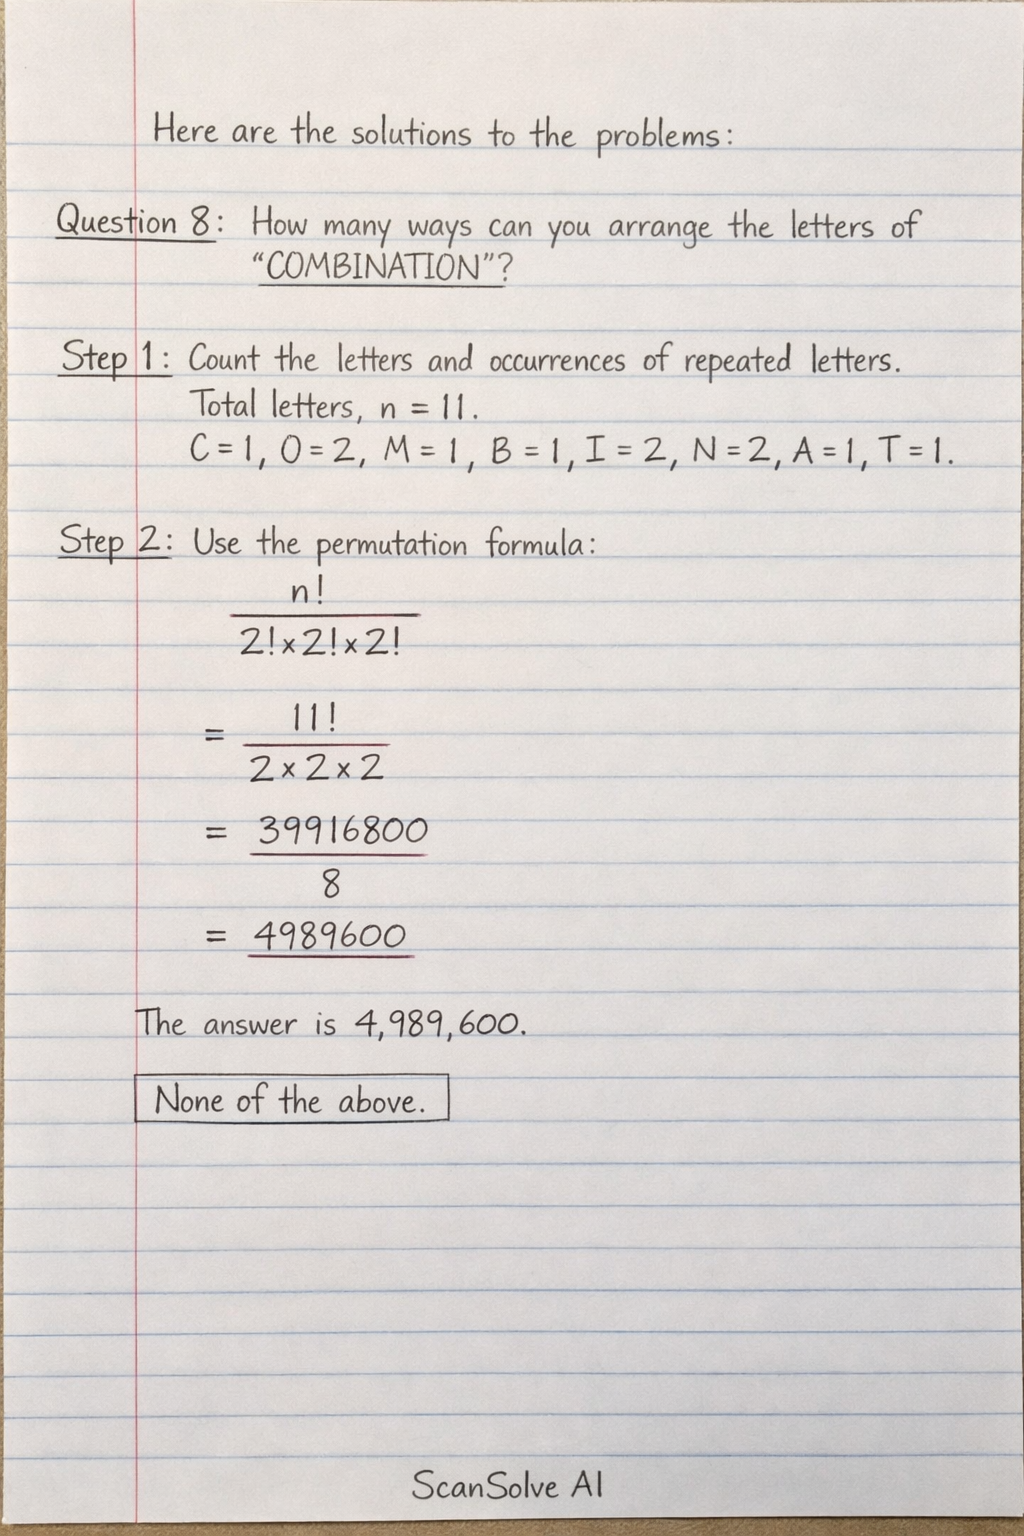 Here are the solutions to the problems:
Question 8: How many ways can you arrange the letters of
“COMBINATION”?
Step 1: Count the letters and occurrences of repeated letters.
Total letters, n = 11.
C = 1, O = 2, M = 1, B = 1, I = 2, N = 2, A = 1, T = 1.
Step 2: Use the permutation formula:
n!
2! × 2! × 2!
= 11!
2 × 2 × 2
= 39916800
8
= 4989600
The answer is 4,989,600.
None of the above.
ScanSolve AI